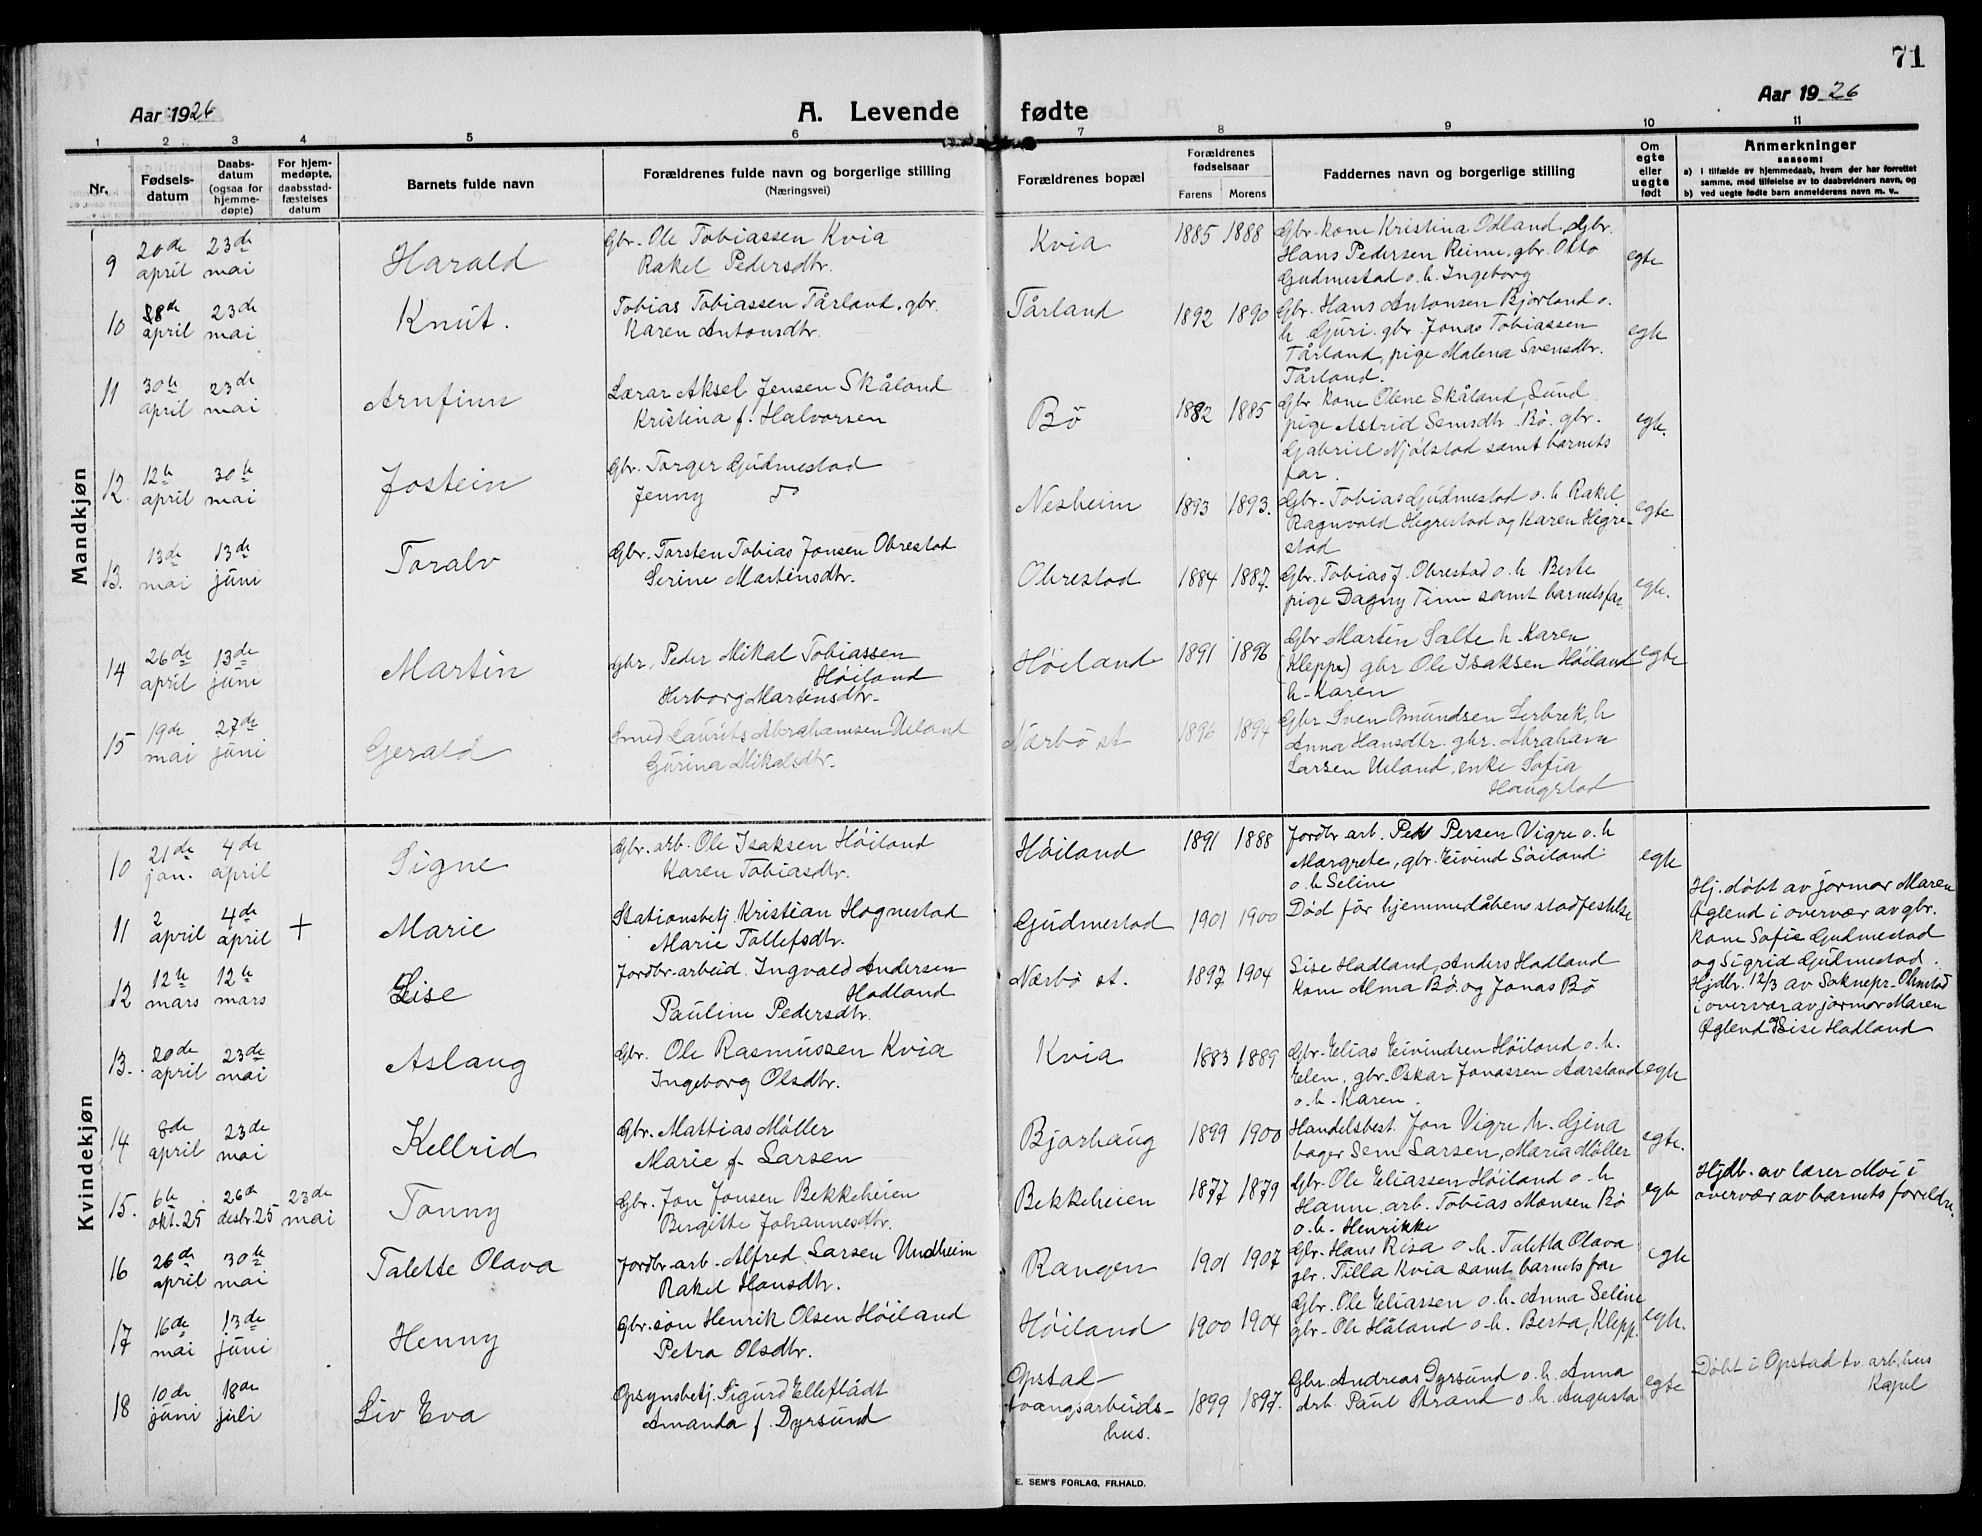 71
Aar 1926
A. Levende fødte
Aar 1926
1 2 3 4 5 6 7 8 9 10 11
Nr.
Fødsels-
datum
Daabs-
datum
(ogsaa for
hjemme-
døpte)
For hjem-
medøpte,
daabsstad-
fæstelses
datum
Barnets fulde navn
Forældrenes fulde navn og borgerlige stilling
(Næringsvei)
Forældrenes bopæl
Forældrenes
fødselsaar
Farens Morens
Faddernes navn og borgerlige stilling
Om
egte
eller
uegte
født
Anmerkninger
saasom:
a) i tilfælde av hjemmedaab, hvem der har forrettet
samme, med tilføielse av to daabsvidners navn, og
b) ved uegte fødte barn anmelderens navn m. v..
Mandkjøn
9
20de april
23de mai
Harald
Gbr. Ole Tobiassen Kvia
Rakel Pedersdtr.
Kvia
1885 1888
Gbr. kone Kristina Odland, gbr.
Hans Pedersen Reime, gbr. Otto
Gudmestad o. h. Ingeborg
egte
10
april
23de mai
Knut.
Tobias Tobiassen Tårland, gbr.
Karen Antonsdtr.
Tårland
1892 1890
Gbr. Hans Antonsen Bjorland o.
h. Guri. gbr. Jonas Tobiassen
Tårland, pige Malena Svensdtr.
Tårland.
egte
11
30te april
23de mai
Arnfinn
Lærar Aksel Jensen Skåland
Kristina f. Halvorsen
Bö
1882 1885
Gbr. kone Olene Skåland, Sund
pige Astrid Semsdtr. Bö. gbr.
Gabriel Njølstad samt barnets
far.
egte.
12.
12te april
30te mai
Jostein
Gbr. Torger Gudmestad
Jenny do
Nesheim
1893 1893.
Gbr. Tobias Gudmestad o. h. Rakel
Ragnvald Hegrestad og Karen Hegre-
stad
egte
13.
13de mai
13de juni
Toralv
Gbr. Torsten Tobias Jonsen Obrestad
Serine Martinsdtr.
Obrestad
1884 1887.
Gbr. Tobias J. Obrestad o. h. Berte
pige Dagny Time samt barnets far
egte.
14
26de april
13de juni
Martin
Gbr. Peder Mikal Tobiassen
Höiland
Herborg Martinsdtr.
Höiland
1891 1896
Gbr Martin Salte h. Karen
(Kleppe) gbr Ole Isaksen Höiland
h. Karen
egte
15
19de mai
27de juni
Gerald
Smed Laurits Abrahamsen Ueland
Gurina Mikalsdtr.
Nærbö st
1896 1894
Gbr Sven Omundsen Serbrek, h
Anna Hansdtr. gbr. Abraham
Larsen Ueland, enke Sofia
Haugstad
Kvindekjøn
10
21de jan.
4de april
Signe
Gbr. arb. Ole Isaksen Höiland
Karen Tobiasdtr.
Höiland
1891 1888
Jordbr arb. Peder Persen Vigre o. h
Margrete, gbr. Eivind Söiland
o. h Seline
egte
11
2 april
4de april
+
Marie
Stationsbetj. Kristian Hognestad
Marie Tollefsdtr.
Gudmestad
1901 1900
Död før hjemmedåbens stadfestelse
Hj. döbt av jormor Maren
Öglend i overvær av gbr.
kone Sofie Gudmestad
og Sigrid Gudmestad.
12
12te mars
12te mars
Lise
Jordbr. arbeid. Ingvald Andersen
Hadland
Pauline Pedersdtr.
Nærbö st.
1897 1904
Lise Hadland, Anders Hadland
kone Alma Bö og Jonas Bö
Hjdbr. 12/3 av Soknepr. Ohnstad
i overvær av jormor Maren
Öglend og Lise Hadland
13.
20de april
23de mai
Aslaug
Gbr. Ole Rasmussen Kvia
Ingeborg Olsdtr.
Kvia
1883 1889
Gbr. Elias Eivindsen Höiland o. h.
Elen, gbr. Oskar Jonassen Aarsland
o. h. Karen.
egte
14
8de april
23de mai
Kellrid
Gbr. Mattias Möller
Marie f. Larsen
Bjorhaug
1899 1900
Handelsbest. Jon Vigre h. Gjina
bager Sem Larsen, Maria Möller
egte.
15.
6te okt. 25
26de desbr. 25
23de mai
Tonny
Gbr. Jon Jonsen Bekkeheien
Bergitte Johannesdtr.
Bekkeheien
1877 1879
Gbr. Ole Eliassen Höiland o. h
Hanne, arb. Tobias Monsen Bö
o. h. Henrikke
egte
Hjdb. av lærer Moi i
overvær av barnets foreldre.
16
26de april
30te mai
Talette Olava
Jordbr. arb. Alfred Larsen Undheim
Rakel Hansdtr.
Rangen
1901 1907
Gbr. Hans Risa o. h. Taletta Olava
gbr. Tilla Kvia samt barnets far
egte
17
16de mai
13de juni
Henny
Gbr. sön Henrik Olsen Höiland
Petra Olsdtr.
Höiland
1900 1904
Gbr. Ole Eliassen o. h. Anna Seline
gbr. Ole Håland o. h. Berta, Klepp.
egte.
18
10de juni
18de juli
Liv Eva
Opsynsbetj. Sigurd Elleflådt
Amanda f. Dyrsund
Opstad
tvangsarbeids-
hus.
1899 1897.
Gbr. Andreas Dyrsund o. h. Anna
Arb. Paul Strand o. h. Augusta
egte
Döbt i Opstad tv. arb. hus
Kapel
E. SEM'S FORLAG, FR.HALD.